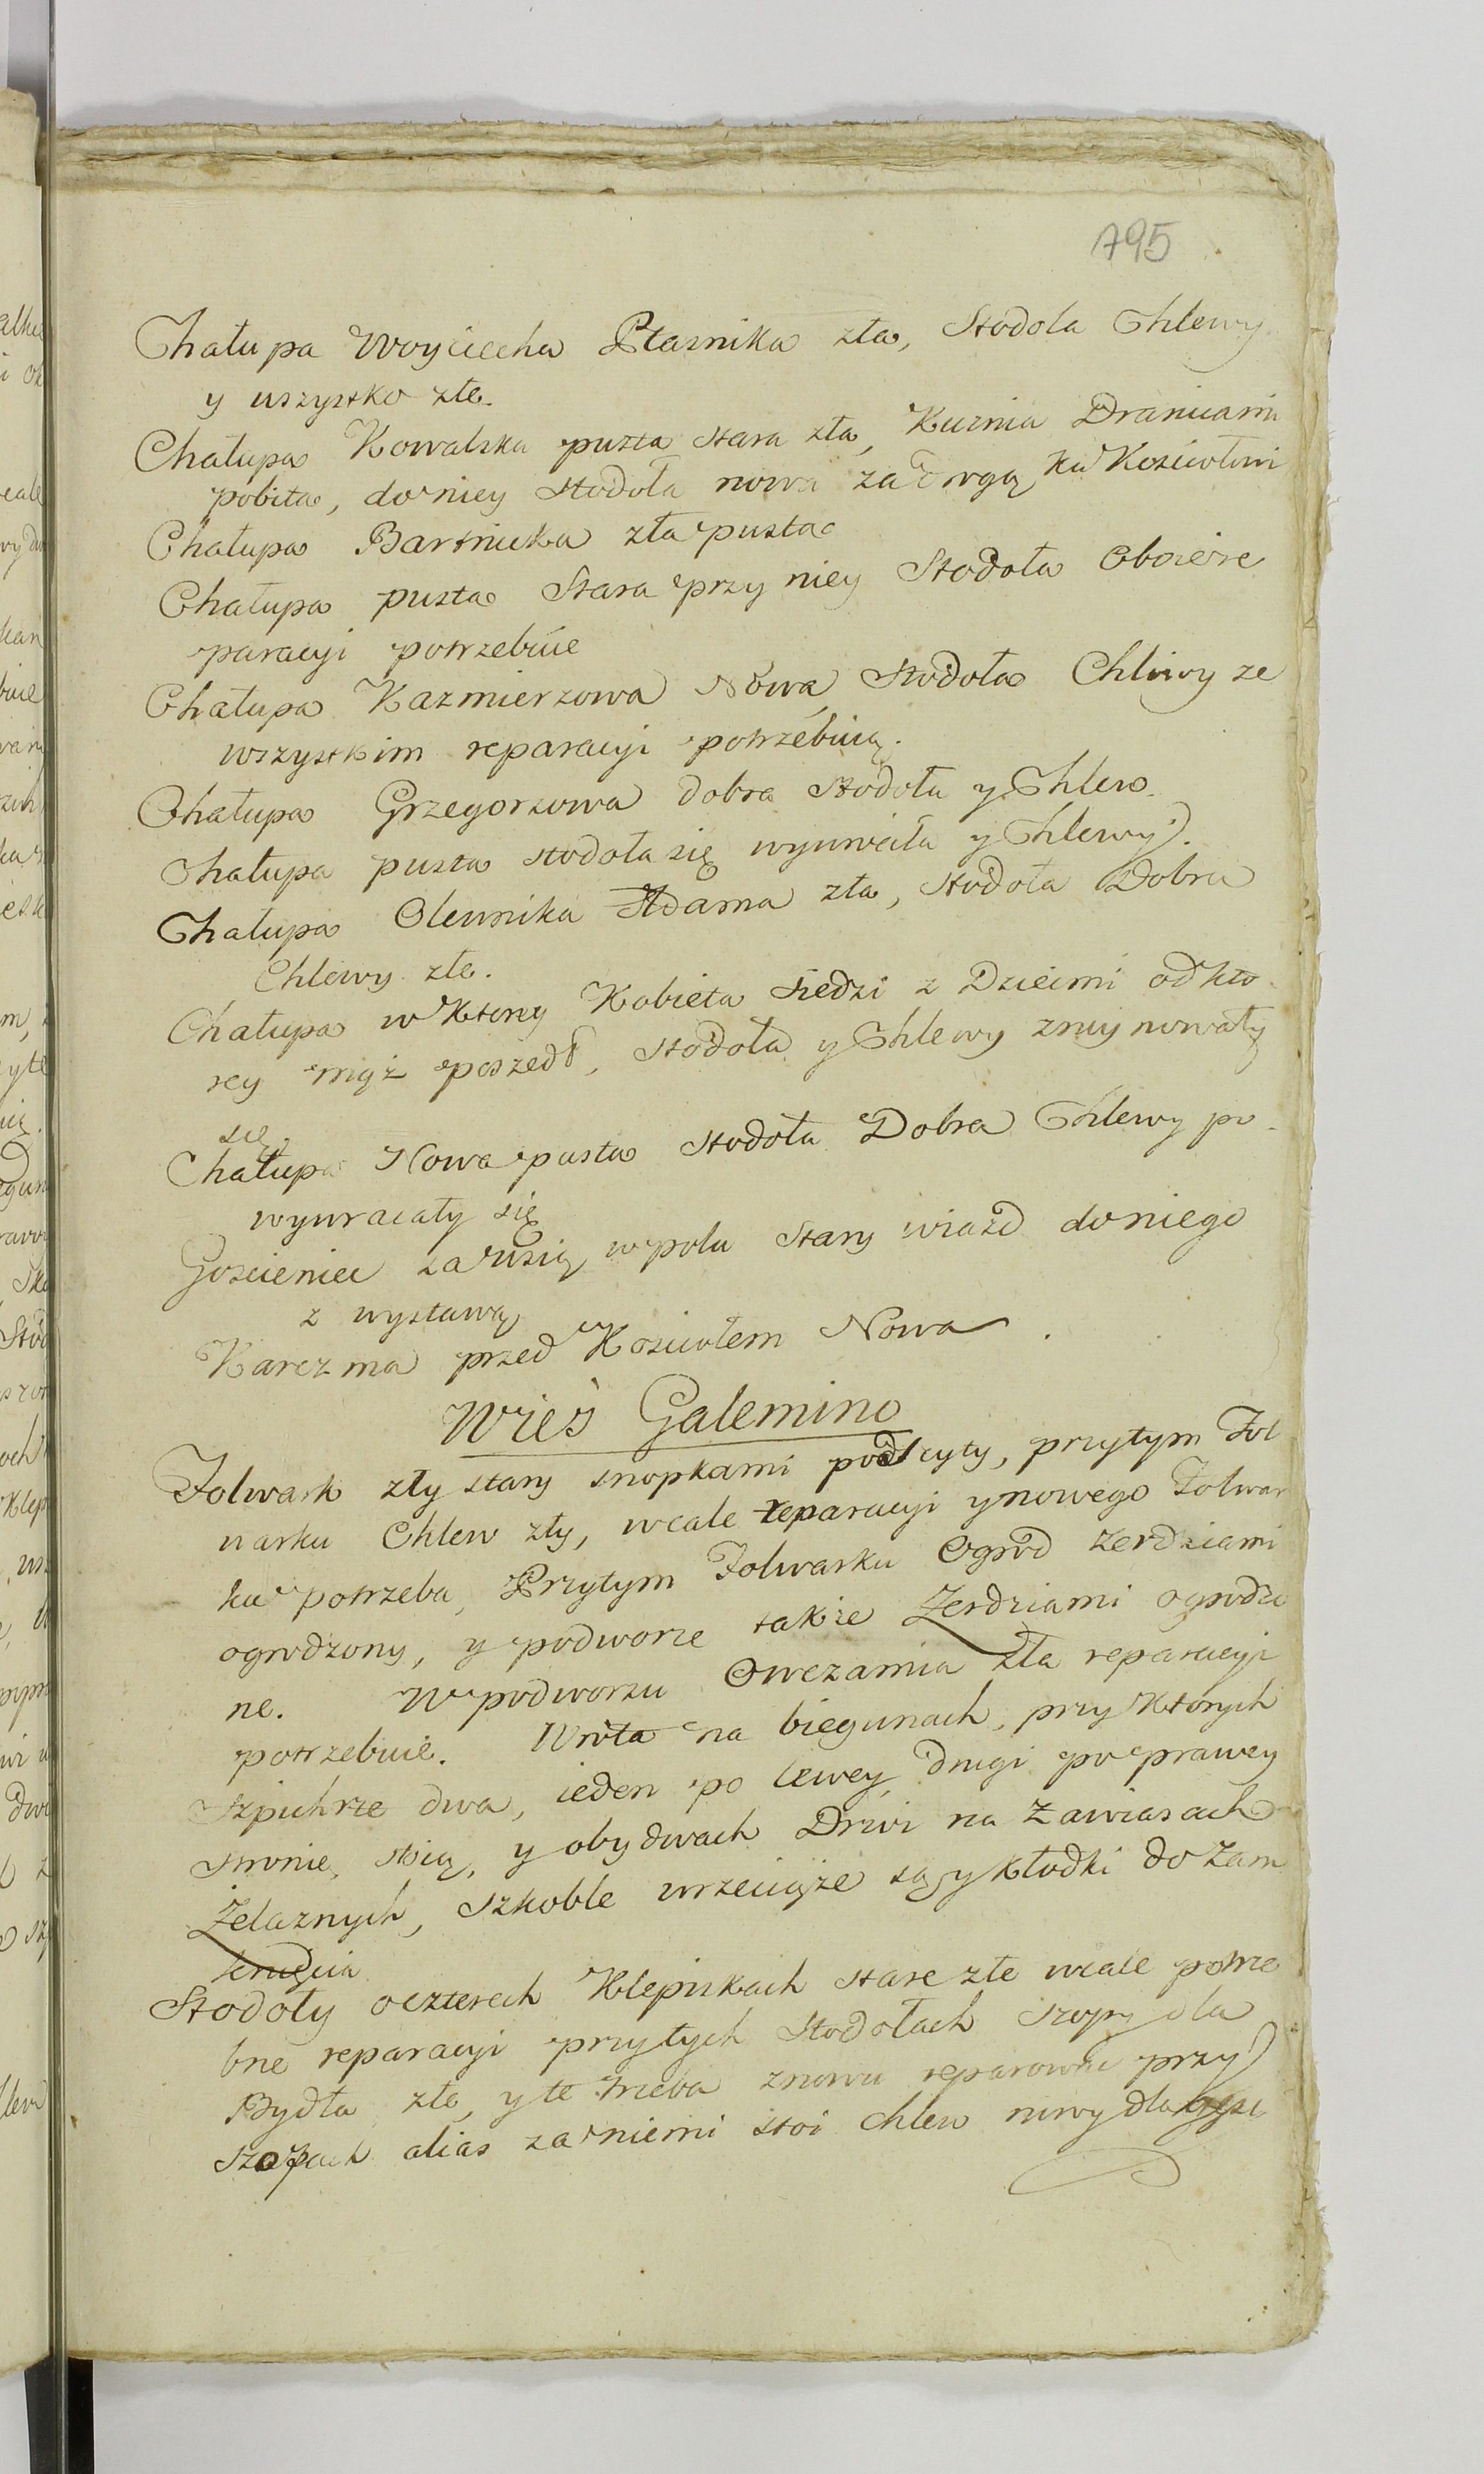 795
Chałupa Woyciecha Ptasnika zła, Stodola Chlewy
y wszystko złe.
Chałupa Kowalska pusta stara zła, Kuznia Dranicami
pobita, do niey stodoła nowa za drogą ku Kosciołowi
Chałupa Bartnicka zła pusta
Chałupa pusta Stara przy niey Stodoła Oboie re
paracyi potrzebuie
Chałupa Kazmierzowa Nowa Stodoła Chliwy ze
wszystkim reparacyi potrzebuią.
Chałupa Grzegorzowa dobra stodoła y Chlew.
Chałupa pusta stodoła się wywrociła y Chlewy.
Chałupa Olewnika Adama zła, stodoła Dobra
Chlewy złe.
Chałupa w Ktorey Kobieta siedzi z Dziecmi od kto
rey mąż poszedł, stodoła y Chlewy zruynowały
się
Chałupa Nowa pusta stodoła Dobra Chlewy po
wywracały się
Gosciniec za wsią w polu Stary wiazd do niego
z wystawą
Karczma przed Kosciołem Nowa.
Wies Galemino
Folwark zły stary snopkami podszyty, przytym Fol
warku Chlew zły, wcale reparacyi y nowego Folwar
ku potrzeba, Przytym Folwarku Ogrod Zerdziami
ogrodzony, y podworze także Zerdziami ogrodzo
ne. W podworzu Owczarnia zła reparacyi
potrzebuie. Wrota na biegunach, przy Ktorych
Szpichrze dwa, ieden po lewey drugi po prawey
stronie stoią, y obydwach Drzwi na Zawiasach
Żelaznych, Szkoble wrzeciąże są y Kłodki do Zam
knięcia
Stodoły o czterech Klepiskach stare złe wcale potrze
bne reparacyi przytych Stodołach szopy dla
Bydła złe, y te trzeba znowu reparować przy
szopach alias za niemi stoi chlew nowy dla gęsi